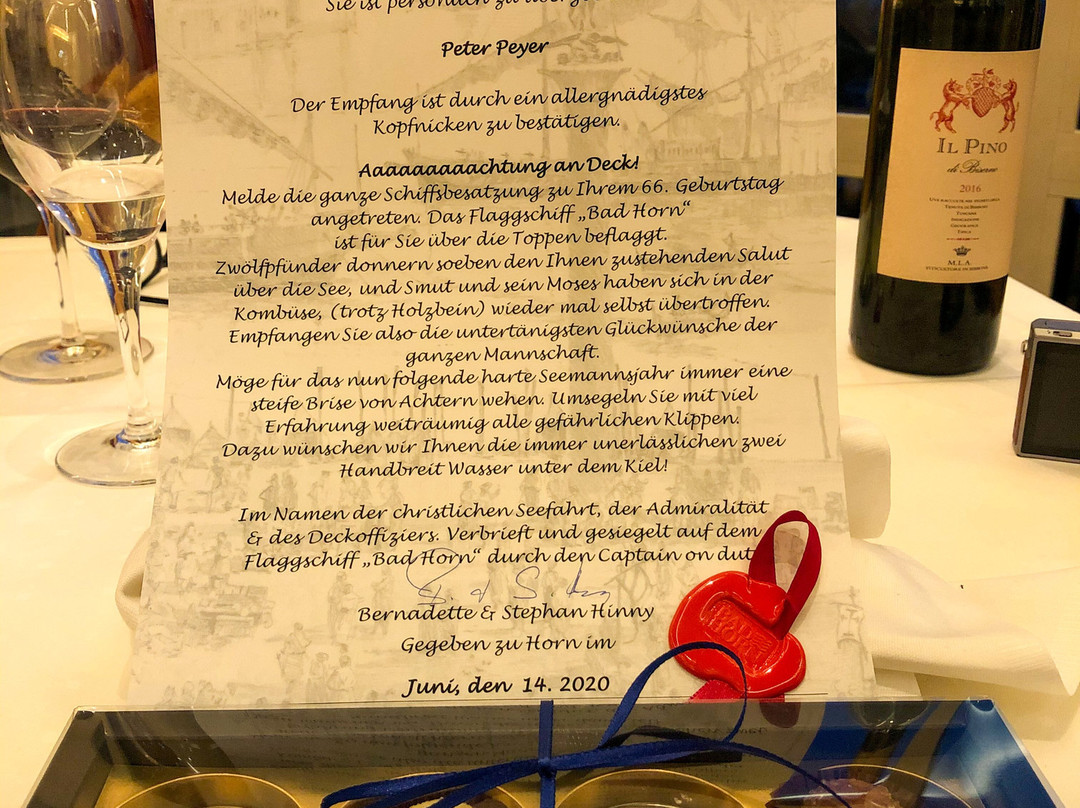 Sie ist persönlich zu
Peter Peyer
Der Empfang ist durch ein allergnädigstes
Kopfnicken zu bestätigen.
Aaaaaaaaachtung an Deck!
Melde die ganze Schiffsbesatzung zu Ihrem 66. Geburtstag
angetreten. Das Flaggschiff „Bad Horn“
ist für Sie über die Toppen beflaggt.
Zwölfpfünder donnern soeben den Ihnen zustehenden Salut
über die See, und Smut und sein Moses haben sich in der
Kombüse, (trotz Holzbein) wieder mal selbst übertroffen.
Empfangen Sie also die untertänigsten Glückwünsche der
ganzen Mannschaft.
Möge für das nun folgende harte Seemannsjahr immer eine
steife Brise von Achtern wehen. Umsegeln Sie mit viel
Erfahrung weiträumig alle gefährlichen Klippen.
Dazu wünschen wir Ihnen die immer unerlässlichen zwei
Handbreit Wasser unter dem Kiel!
Im Namen der christlichen Seefahrt, der Admiralität
& des Deckoffiziers. Verbrieft und gesiegelt auf dem
Flaggschiff „Bad Horn“ durch den Captain on dut
Bernadette & Stephan Hinny
Gegeben zu Horn im
Juni, den 14. 2020
IL PINO
di Biserno
2016
TOSCANA
INDICAZIONE
GEOGRAFICA
TIPICA
M.L.A.